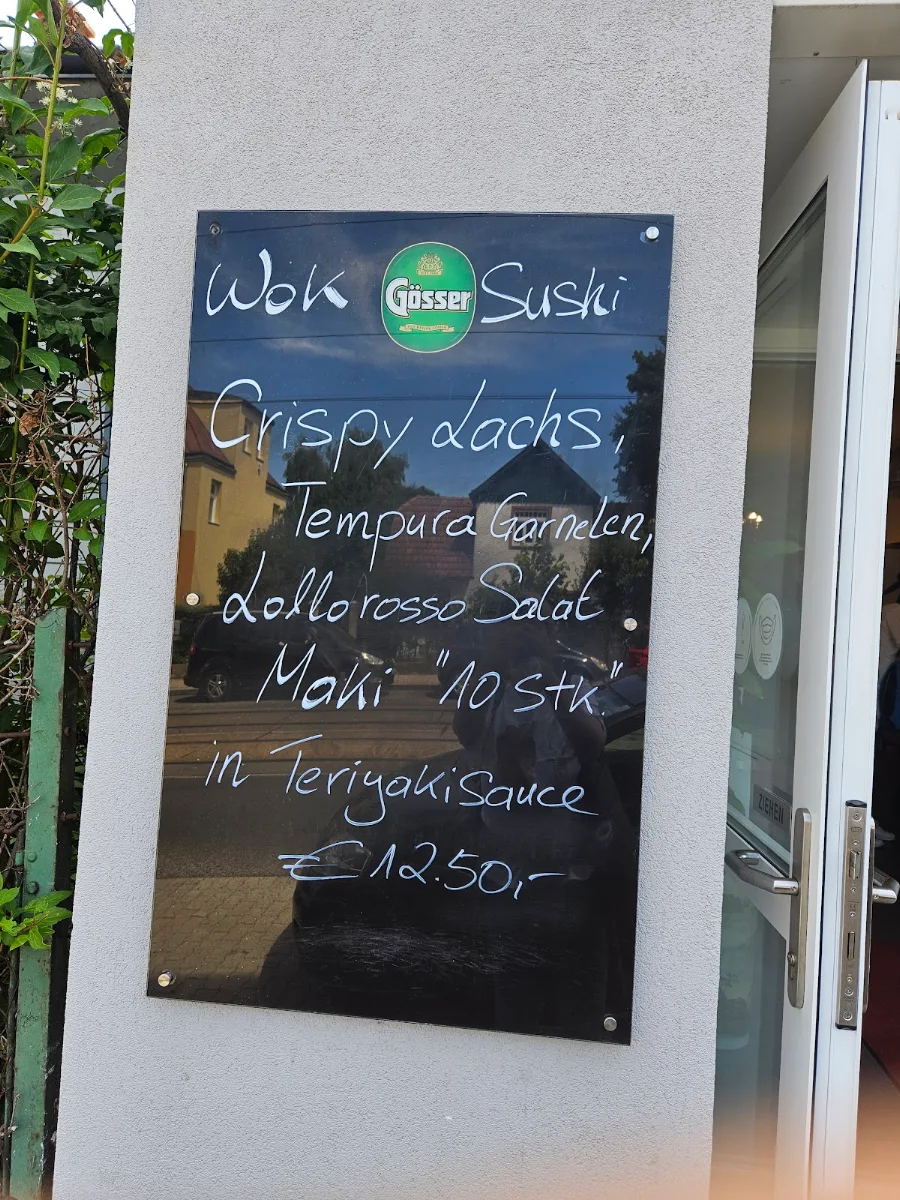 Wok Gösser Sushi
Crispy Lachs,
Tempura Garnelen,
Lollo rosso Salat
Maki "10 Stk."
in Teriyaki Sauce
€ 12.50,-
ZIEHEN